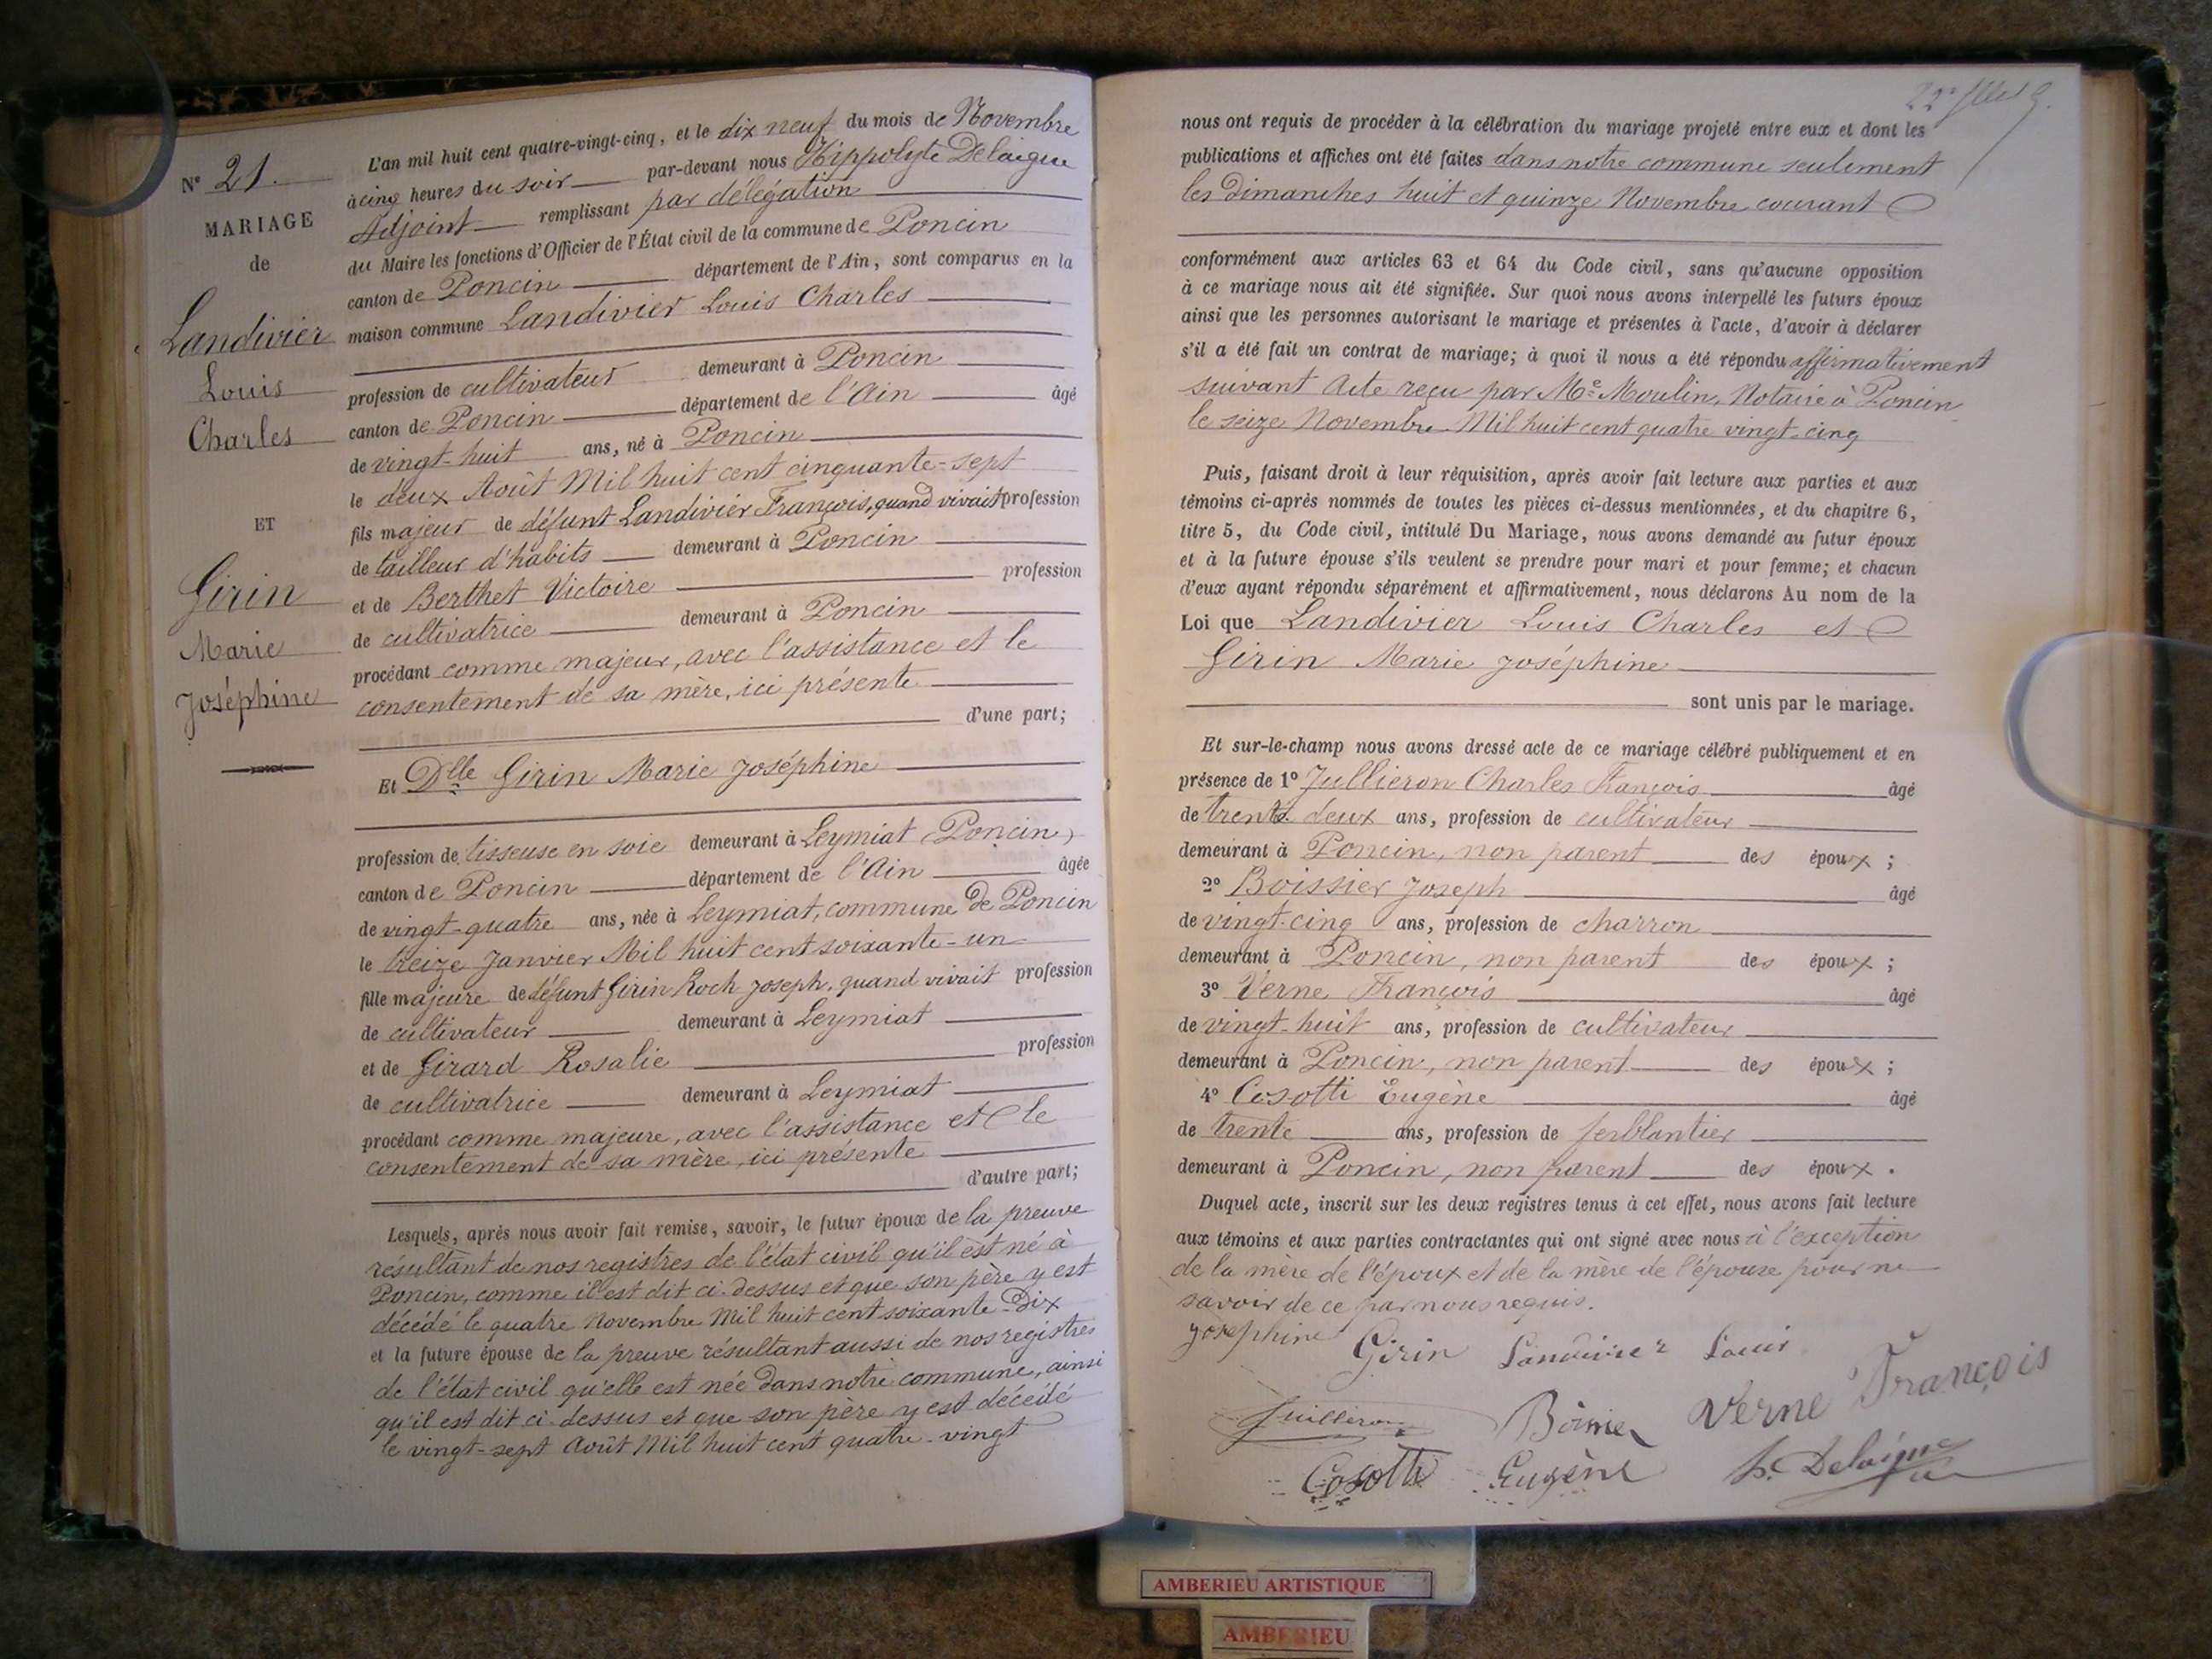 N° 21.
MARIAGE
de
Landivier
Louis
Charles
ET
Girin
Marie
Joséphine
L'an mil huit cent quatre-vingt-cinq, et le dix neuf du mois de Novembre
à cinq heures du soir par-devant nous Hippolyte Delaigue
Adjoint remplissant par délégation
du Maire les fonctions d'Officier de l'État civil de la commune de Poncin
canton de Poncin département de l'Ain, sont comparus en la
maison commune Landivier Louis Charles
profession de cultivateur demeurant à Poncin
canton de Poncin département de l'Ain âgé
de vingt-huit ans, né à Poncin
le deux Août Mil huit cent cinquante-sept
fils majeur de défunt Landivier François, quand vivait profession
de tailleur d'habits demeurant à Poncin
et de Berthet Victoire profession
de cultivatrice demeurant à Poncin
procédant comme majeur, avec l'assistance et le
consentement de sa mère, ici présente
d'une part;
Et Dlle Girin Marie Joséphine
profession de tisseuse en soie demeurant à Leymiat (Poncin)
canton de Poncin département de l'Ain âgée
de vingt-quatre ans, née à Leymiat, commune de Poncin
le treize Janvier Mil huit cent soixante-un
fille majeure de défunt Girin Roch Joseph, quand vivait profession
de cultivateur demeurant à Leymiat
et de Girard Rosalie profession
de cultivatrice demeurant à Leymiat
procédant comme majeure, avec l'assistance et le
consentement de sa mère, ici présente
d'autre part;
Lesquels, après nous avoir fait remise, savoir, le futur époux de la preuve
résultant de nos registres de l'état civil qu'il est né à
Poncin, comme il est dit ci-dessus et que son père y est
décédé le quatre Novembre Mil huit cent soixante-Dix
et la future épouse de la preuve résultant aussi de nos registres
de l'état civil qu'elle est née dans notre commune, ainsi
qu'il est dit ci-dessus et que son père y est décédé
le vingt-sept Août Mil huit cent quatre-vingt
nous ont requis de procéder à la célébration du mariage projeté entre eux et dont les
publications et affiches ont été faites dans notre commune seulement
les Dimanches huit et quinze Novembre courant
conformément aux articles 63 et 64 du Code civil, sans qu'aucune opposition
à ce mariage nous ait été signifiée. Sur quoi nous avons interpellé les futurs époux
ainsi que les personnes autorisant le mariage et présentes à l'acte, d'avoir à déclarer
s'il a été fait un contrat de mariage; à quoi il nous a été répondu affirmativement
suivant Acte reçu par Me Moulin, Notaire à Poncin
le seize Novembre Mil huit cent quatre vingt-cinq
Puis, faisant droit à leur réquisition, après avoir fait lecture aux parties et aux
témoins ci-après nommés de toutes les pièces ci-dessus mentionnées, et du chapitre 6,
titre 5, du Code civil, intitulé Du Mariage, nous avons demandé au futur époux
et à la future épouse s'ils veulent se prendre pour mari et pour femme; et chacun
d'eux ayant répondu séparément et affirmativement, nous déclarons Au nom de la
Loi que Landivier Louis Charles et
Girin Marie Joséphine
sont unis par le mariage.
Et sur-le-champ nous avons dressé acte de ce mariage célébré publiquement et en
présence de 1° Jullieron Charles François âgé
de trente deux ans, profession de cultivateur
demeurant à Poncin, non parent des époux;
2° Boissier Joseph âgé
de vingt-cinq ans, profession de charron
demeurant à Poncin, non parent des époux;
3° Verne François âgé
de vingt-huit ans, profession de cultivateur
demeurant à Poncin, non parent des époux;
4° Cosotti Eugène âgé
de trente ans, profession de ferblantier
demeurant à Poncin, non parent des époux.
Duquel acte, inscrit sur les deux registres tenus à cet effet, nous avons fait lecture
aux témoins et aux parties contractantes qui ont signé avec nous à l'exception
de la mère de l'époux et de la mère de l'épouse pour ne
savoir de ce par nous requis.
Josephine Girin Landivier Louis
Juilleron Boissier Verne François
Cosotti Eugène h. Delaigue
AMBERIEU ARTISTIQUE
AMBERIEU